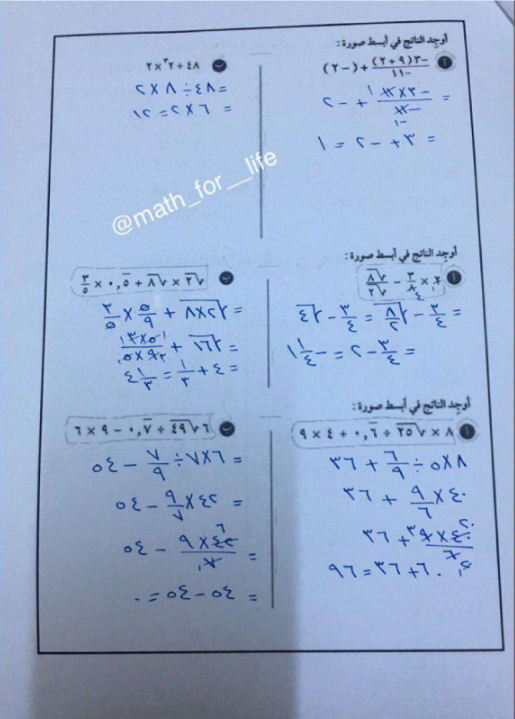 أوجد الناتج في أبسط صورة :
أ -٣(٩+٢)/-١١ + (-٢)
= -٣×١١/-١١ + -٢
= ٣ + -٢ = ١
ب ٤٨ ÷ ٢³ × ٢
= ٤٨ ÷ ٨ × ٢
= ٦ × ٢ = ١٢
@math_for__life
أوجد الناتج في أبسط صورة :
أ ٢ × ٣/٨ - √٨/√٢
= ٣/٤ - √(٨/٢) = ٣/٤ - √٤
= ٣/٤ - ٢ = -١ ١/٤
ب √٢ × √٨ + ٠,٥̅ × ٣/٥
= √(٢×٨) + ٥/٩ × ٣/٥
= √١٦ + ٥×٣/٩×٥
= ٤ + ١/٣ = ٤ ١/٣
أوجد الناتج في أبسط صورة :
أ ٨ × √٢٥ ÷ ٠,٦̅ + ٤ × ٩
٨×٥ ÷ ٦/٩ + ٣٦
٤٠ × ٩/٦ + ٣٦
٤٠×٩/٦ + ٣٦
٦٠ + ٣٦ = ٩٦
ب ٦√٤٩ ÷ ٠,٧̅ - ٩ × ٦
= ٦×٧ ÷ ٧/٩ - ٥٤
= ٤٢ × ٩/٧ - ٥٤
= ٤٢×٩/٧ - ٥٤
= ٥٤ - ٥٤ = ٠